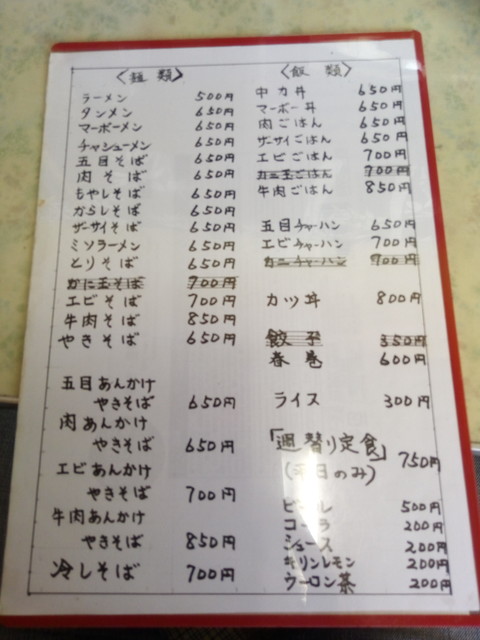 〈麺類〉
ラーメン 500円
タンメン 650円
マーボーメン 650円
チャシューメン 650円
五目そば 650円
肉そば 650円
もやしそば 650円
からしそば 650円
ザーサイそば 650円
ミソラーメン 650円
とりそば 650円
かに玉そば 700円
エビそば 700円
牛肉そば 850円
やきそば 650円
五目あんかけ
やきそば 650円
肉あんかけ
やきそば 650円
エビあんかけ
やきそば 700円
牛肉あんかけ
やきそば 850円
冷しそば 700円
〈飯類〉
中カ丼 650円
マーボー丼 650円
肉ごはん 650円
ザーサイごはん 650円
エビごはん 700円
カニ玉ごはん 700円
牛肉ごはん 850円
五目チャーハン 650円
エビチャーハン 700円
カニチャーハン 700円
カツ丼 800円
餃子 350円
春巻 600円
ライス 300円
「週替り定食」
(平日のみ) 750円
ビール 500円
コーラ 200円
ジュース 200円
キリンレモン 200円
ウーロン茶 200円